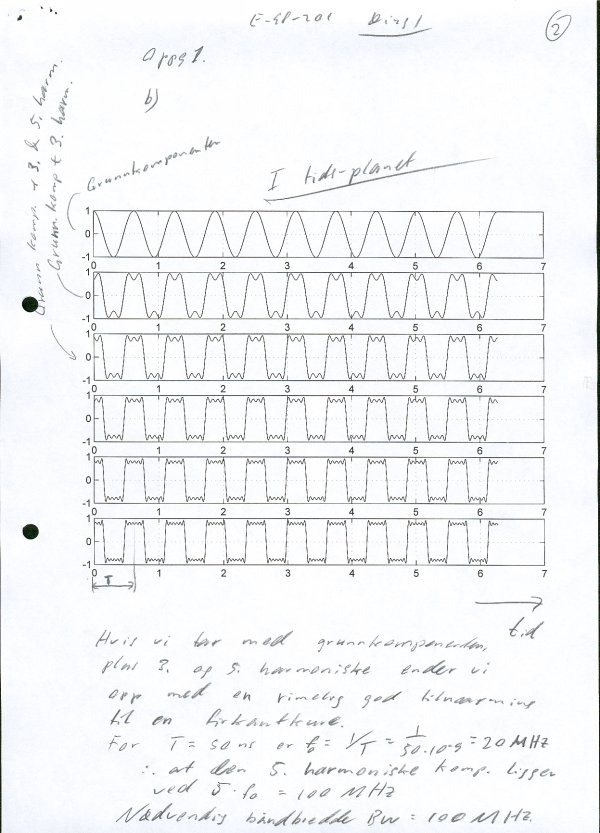 E-SP-201 Øving 1
2
Oppg 1.
b)
I tids-planet
Grunnkomponenten
Grunn. komp + 3. harm.
Grunn komp. + 3. & 5. harm.
1
0
-1
0 1 2 3 4 5 6 7
1
0
-1
0 1 2 3 4 5 6 7
1
0
-1
0 1 2 3 4 5 6 7
1
0
-1
0 1 2 3 4 5 6 7
1
0
-1
0 1 2 3 4 5 6 7
1
0
-1
0 1 2 3 4 5 6 7
T
tid
Hvis vi tar med grunnkomponenten,
plus 3. og 5. harmoniske ender vi
opp med en rimelig god tilnærming
til en firkantkurve.
For T = 50 ns er f₀ = 1/T = 1/50·10⁻⁹ = 20 MHz
∴ at den 5. harmoniske komp. ligger
ved 5·f₀ = 100 MHz
Nødvendig båndbredde BW = 100 MHz.